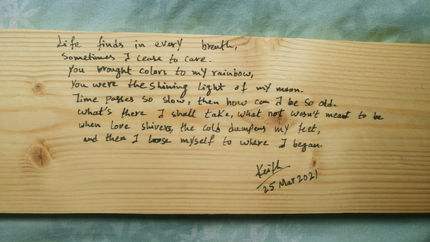 Life finds in every breath,
Sometimes I cease to care.
You brought colors to my rainbow,
You were the shining light of my moon.
Time passes so slow, then how can I be so old.
What's there I shall take, what not wasn't meant to be
when love shivers, the cold dampens my feet,
and then I loose myself to where I began.
Keith
25 Mar 2021